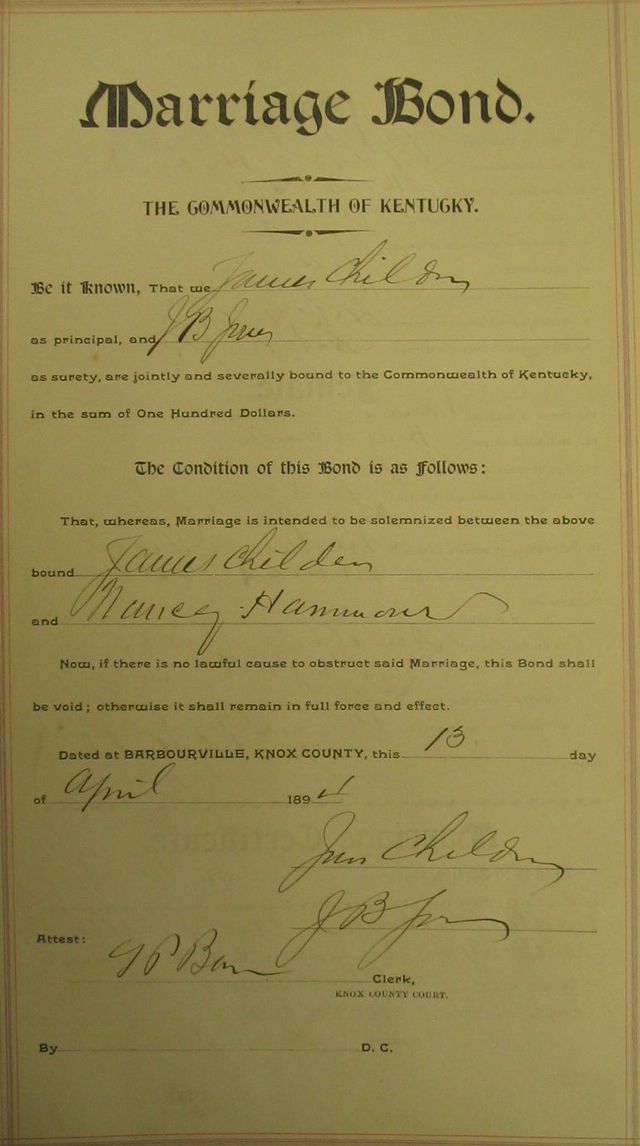 Marriage Bond.
THE COMMONWEALTH OF KENTUCKY.
Be it Known, That we James Childers
as principal, and J B Jones
as surety, are jointly and severally bound to the Commonwealth of Kentucky,
in the sum of One Hundred Dollars.
The Condition of this Bond is as Follows:
That, whereas, Marriage is intended to be solemnized between the above
bound James Childers
and Nancy Hammons
Now, if there is no lawful cause to obstruct said Marriage, this Bond shall
be void; otherwise it shall remain in full force and effect.
Dated at BARBOURVILLE, KNOX COUNTY, this 13 day
of April 1894
Childers
J B Jones
Attest:
Clerk,
KNOX COUNTY COURT.
By D. C.